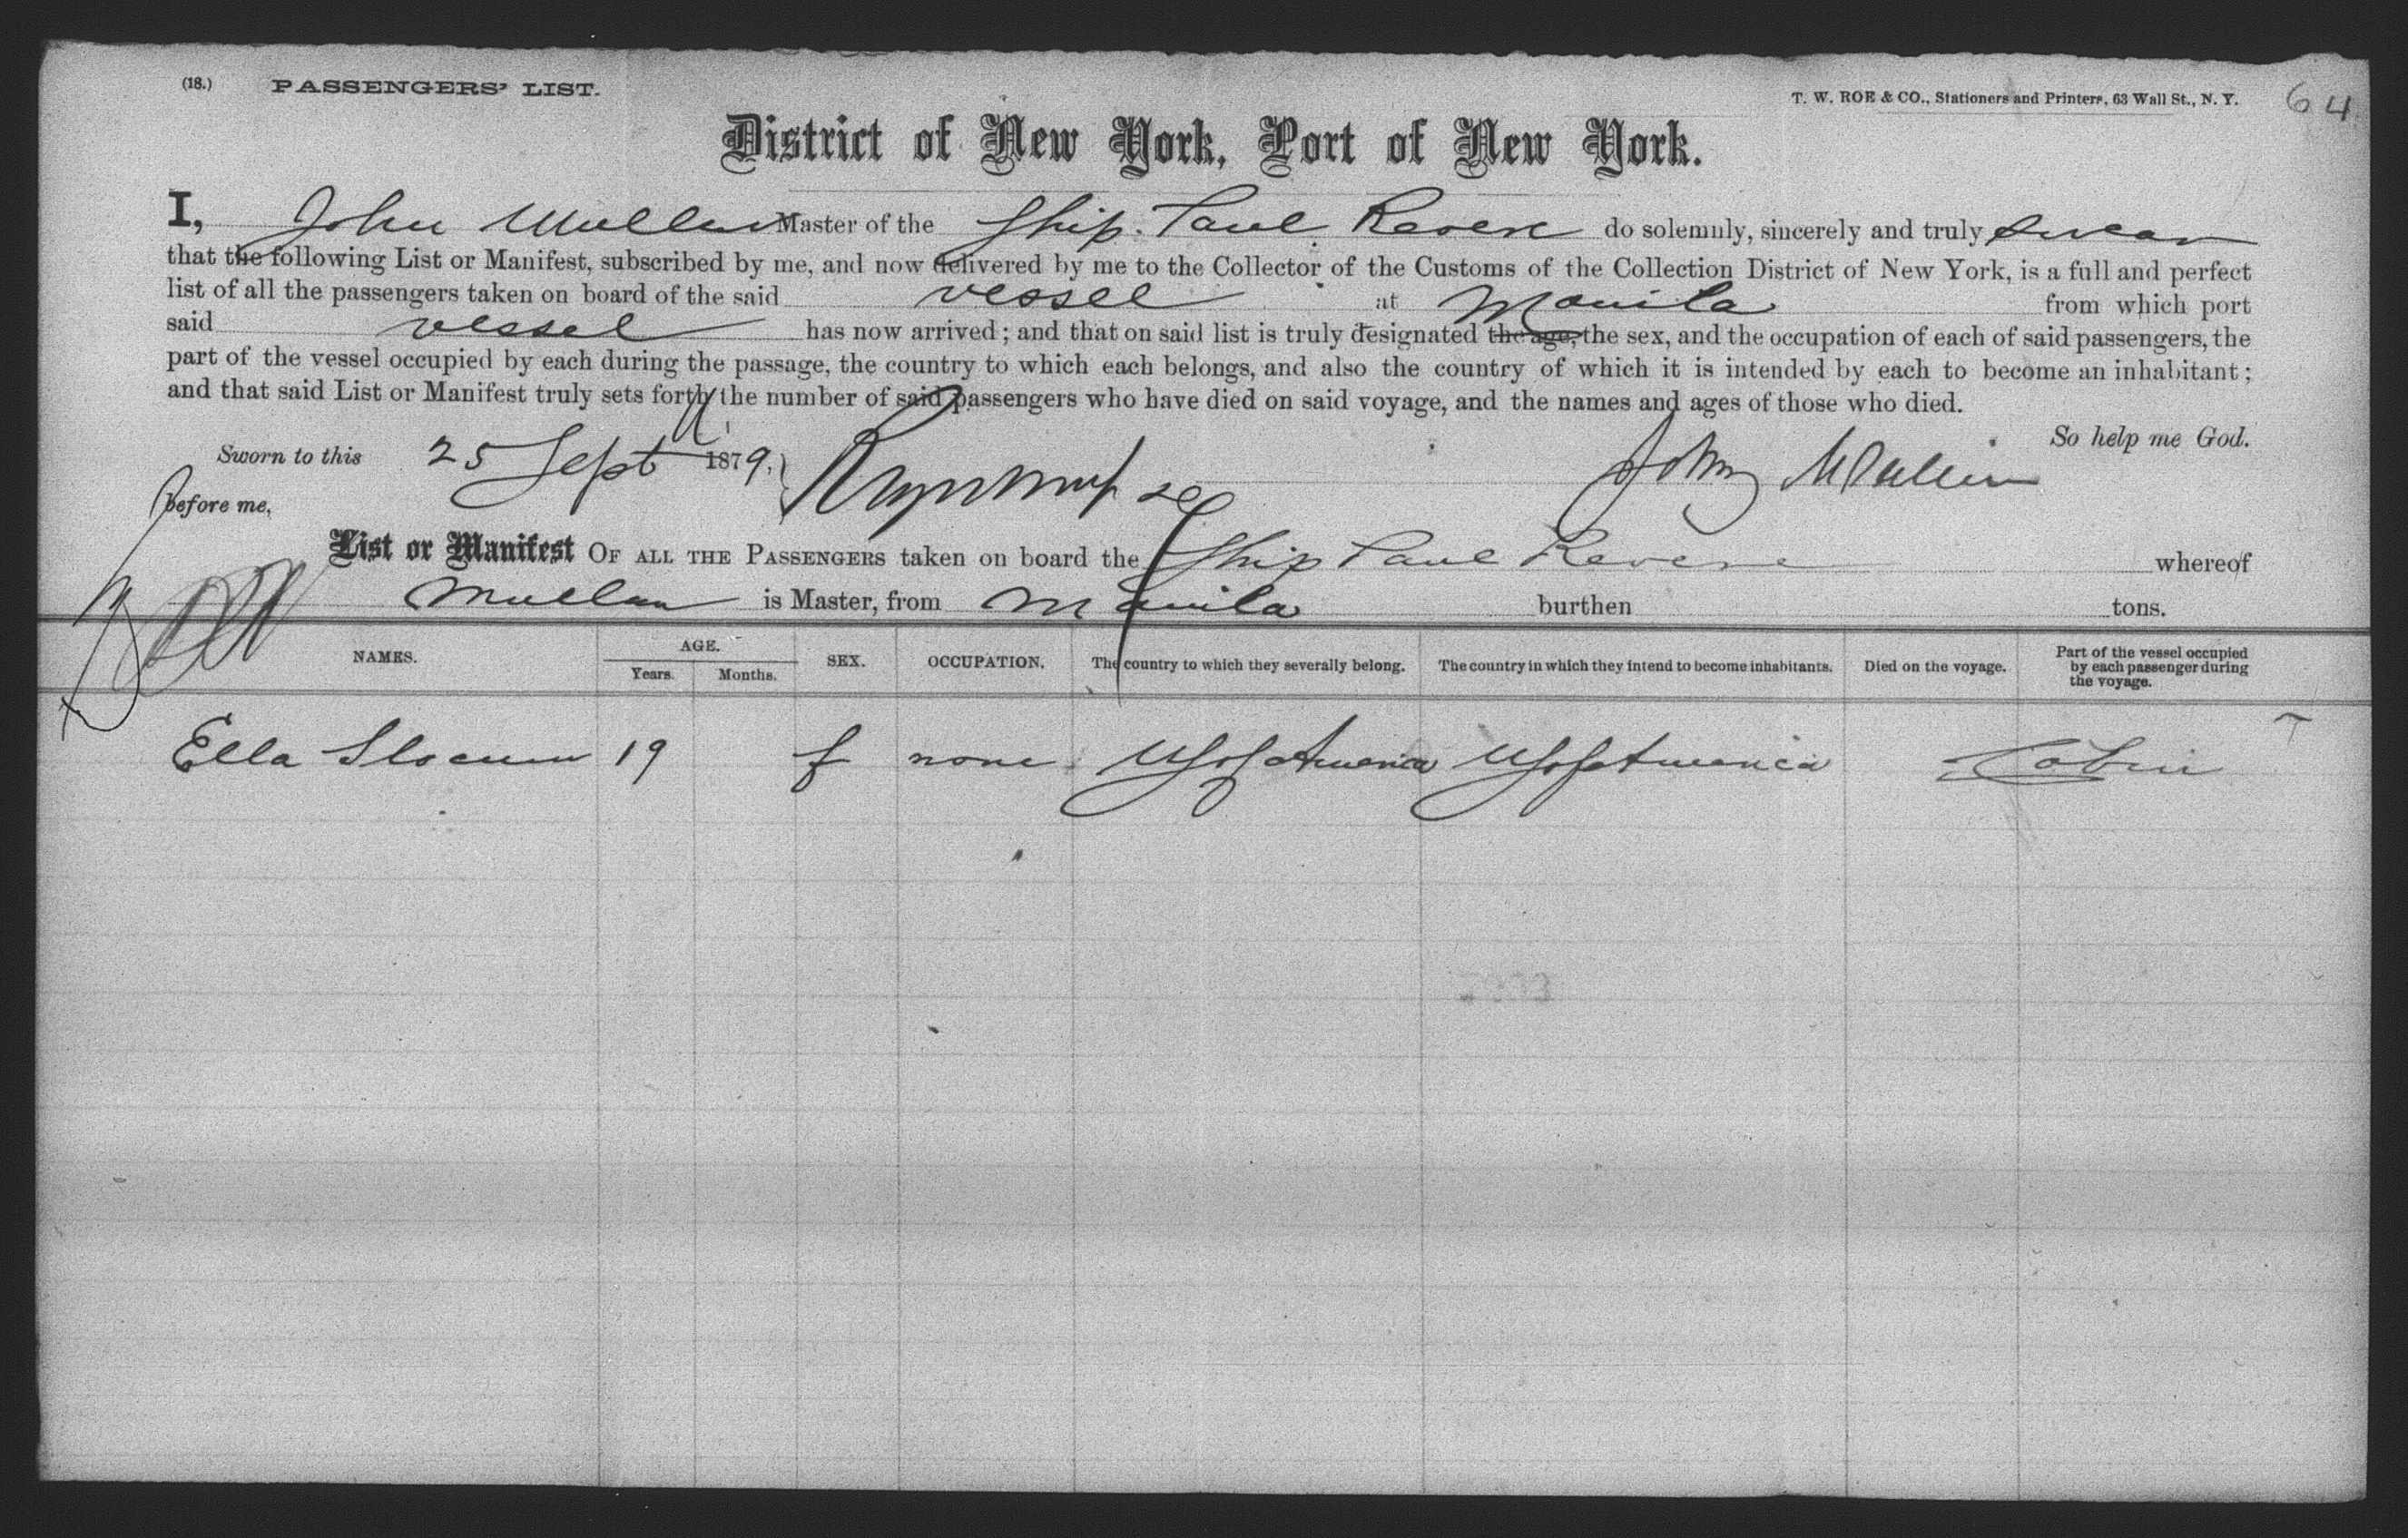 (18.) PASSENGERS' LIST. T. W. ROE & CO., Stationers and Printers, 63 Wall St., N. Y. 64
District of New York, Port of New York.
I, John Mullen Master of the Ship Paul Revere do solemnly, sincerely and truly swear
that the following List or Manifest, subscribed by me, and now delivered by me to the Collector of the Customs of the Collection District of New York, is a full and perfect
list of all the passengers taken on board of the said vessel at Manila from which port
said vessel has now arrived; and that on said list is truly designated the age, the sex, and the occupation of each of said passengers, the
part of the vessel occupied by each during the passage, the country to which each belongs, and also the country of which it is intended by each to become an inhabitant;
and that said List or Manifest truly sets forth the number of said passengers who have died on said voyage, and the names and ages of those who died.
So help me God.
Sworn to this 25 Sept 1879, John Mullen
before me,
List or Manifest OF ALL THE PASSENGERS taken on board the Ship Paul Revere whereof
Mullen is Master, from Manila burthen tons.
NAMES. AGE. Years. Months. SEX. OCCUPATION. The country to which they severally belong. The country in which they intend to become inhabitants. Died on the voyage. Part of the vessel occupied by each passenger during the voyage.
Ella Slocum 19 f none U S of America U S of America Cabin